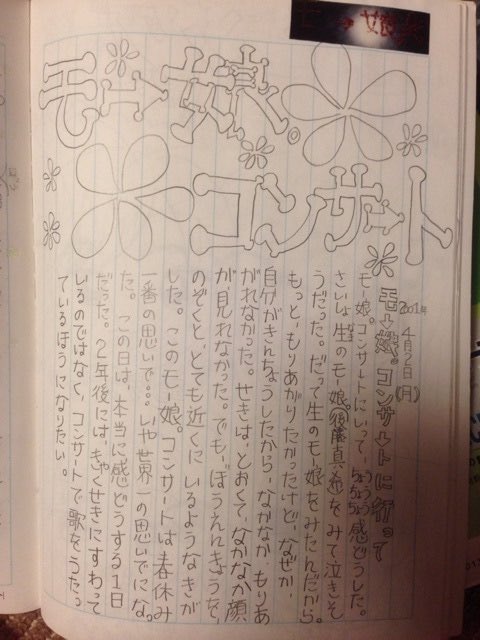 モー娘。
モー娘。
コンサート
2001年
4月2日(月)
モー娘。コンサートに行って
モー娘。コンサートにいって、ちょうちょうちょう感どうした。
さいしょ生のモー娘。(後藤真希)をみて泣きそ
うだった。だって生のモー娘をみたんだから。
もっと、もりあがりたかったけど、なぜか、
自分がきんちょうしたから、なかなか、もりあ
がれなかった。せきは、とおくて、なかなか顔
が、見れなかった。でも、ぼうえんきょうを、
のぞくと、とても近くに いるようなきが
した。このモー娘。コンサートは春休み
一番の思いで。。。いや世界一の思いでにな。
た。この日は、本当に感どうする1日
だった。2年後には、きゃくせきにすわって
いるのではなく、コンサートで歌をうたっ
ているほうになりたい。